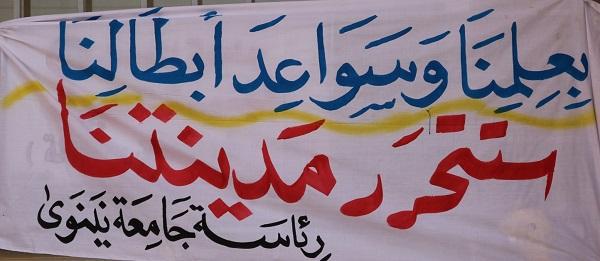 بِعِلمِنَا وَسَوَاعِدَ أبطَالِنَا
ستتحَرر مَدينتنا
رئاسة جَامعَة نينوىٰ